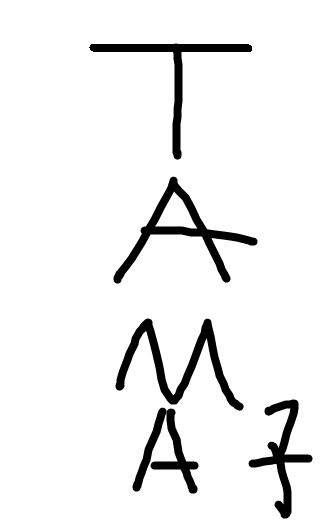 T
A
M
A 7